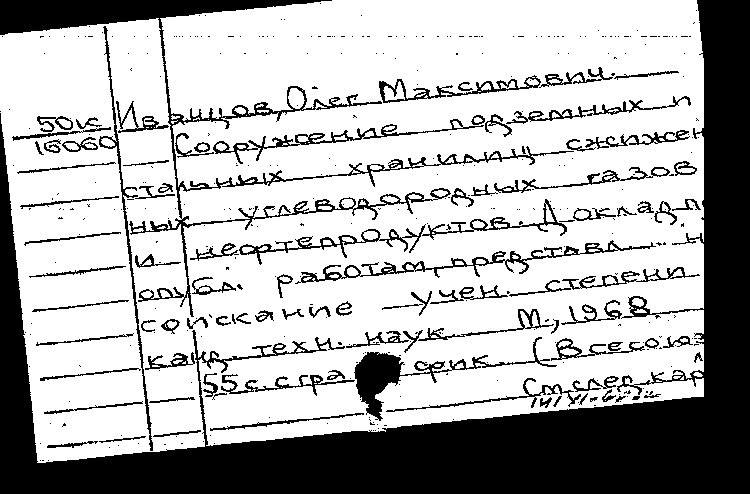 50к Иванцов, Олег Максимович.
16060 Сооружение подземных и
стальных хранилищ сжижен
ных углеводородных газов
и нефтепродуктов. Доклад п
опубл. работам, представл... н
соискание учен. степени
канд. техн. наук М., 1968
55 с с гра фик. (Всесоюз
См след. кар